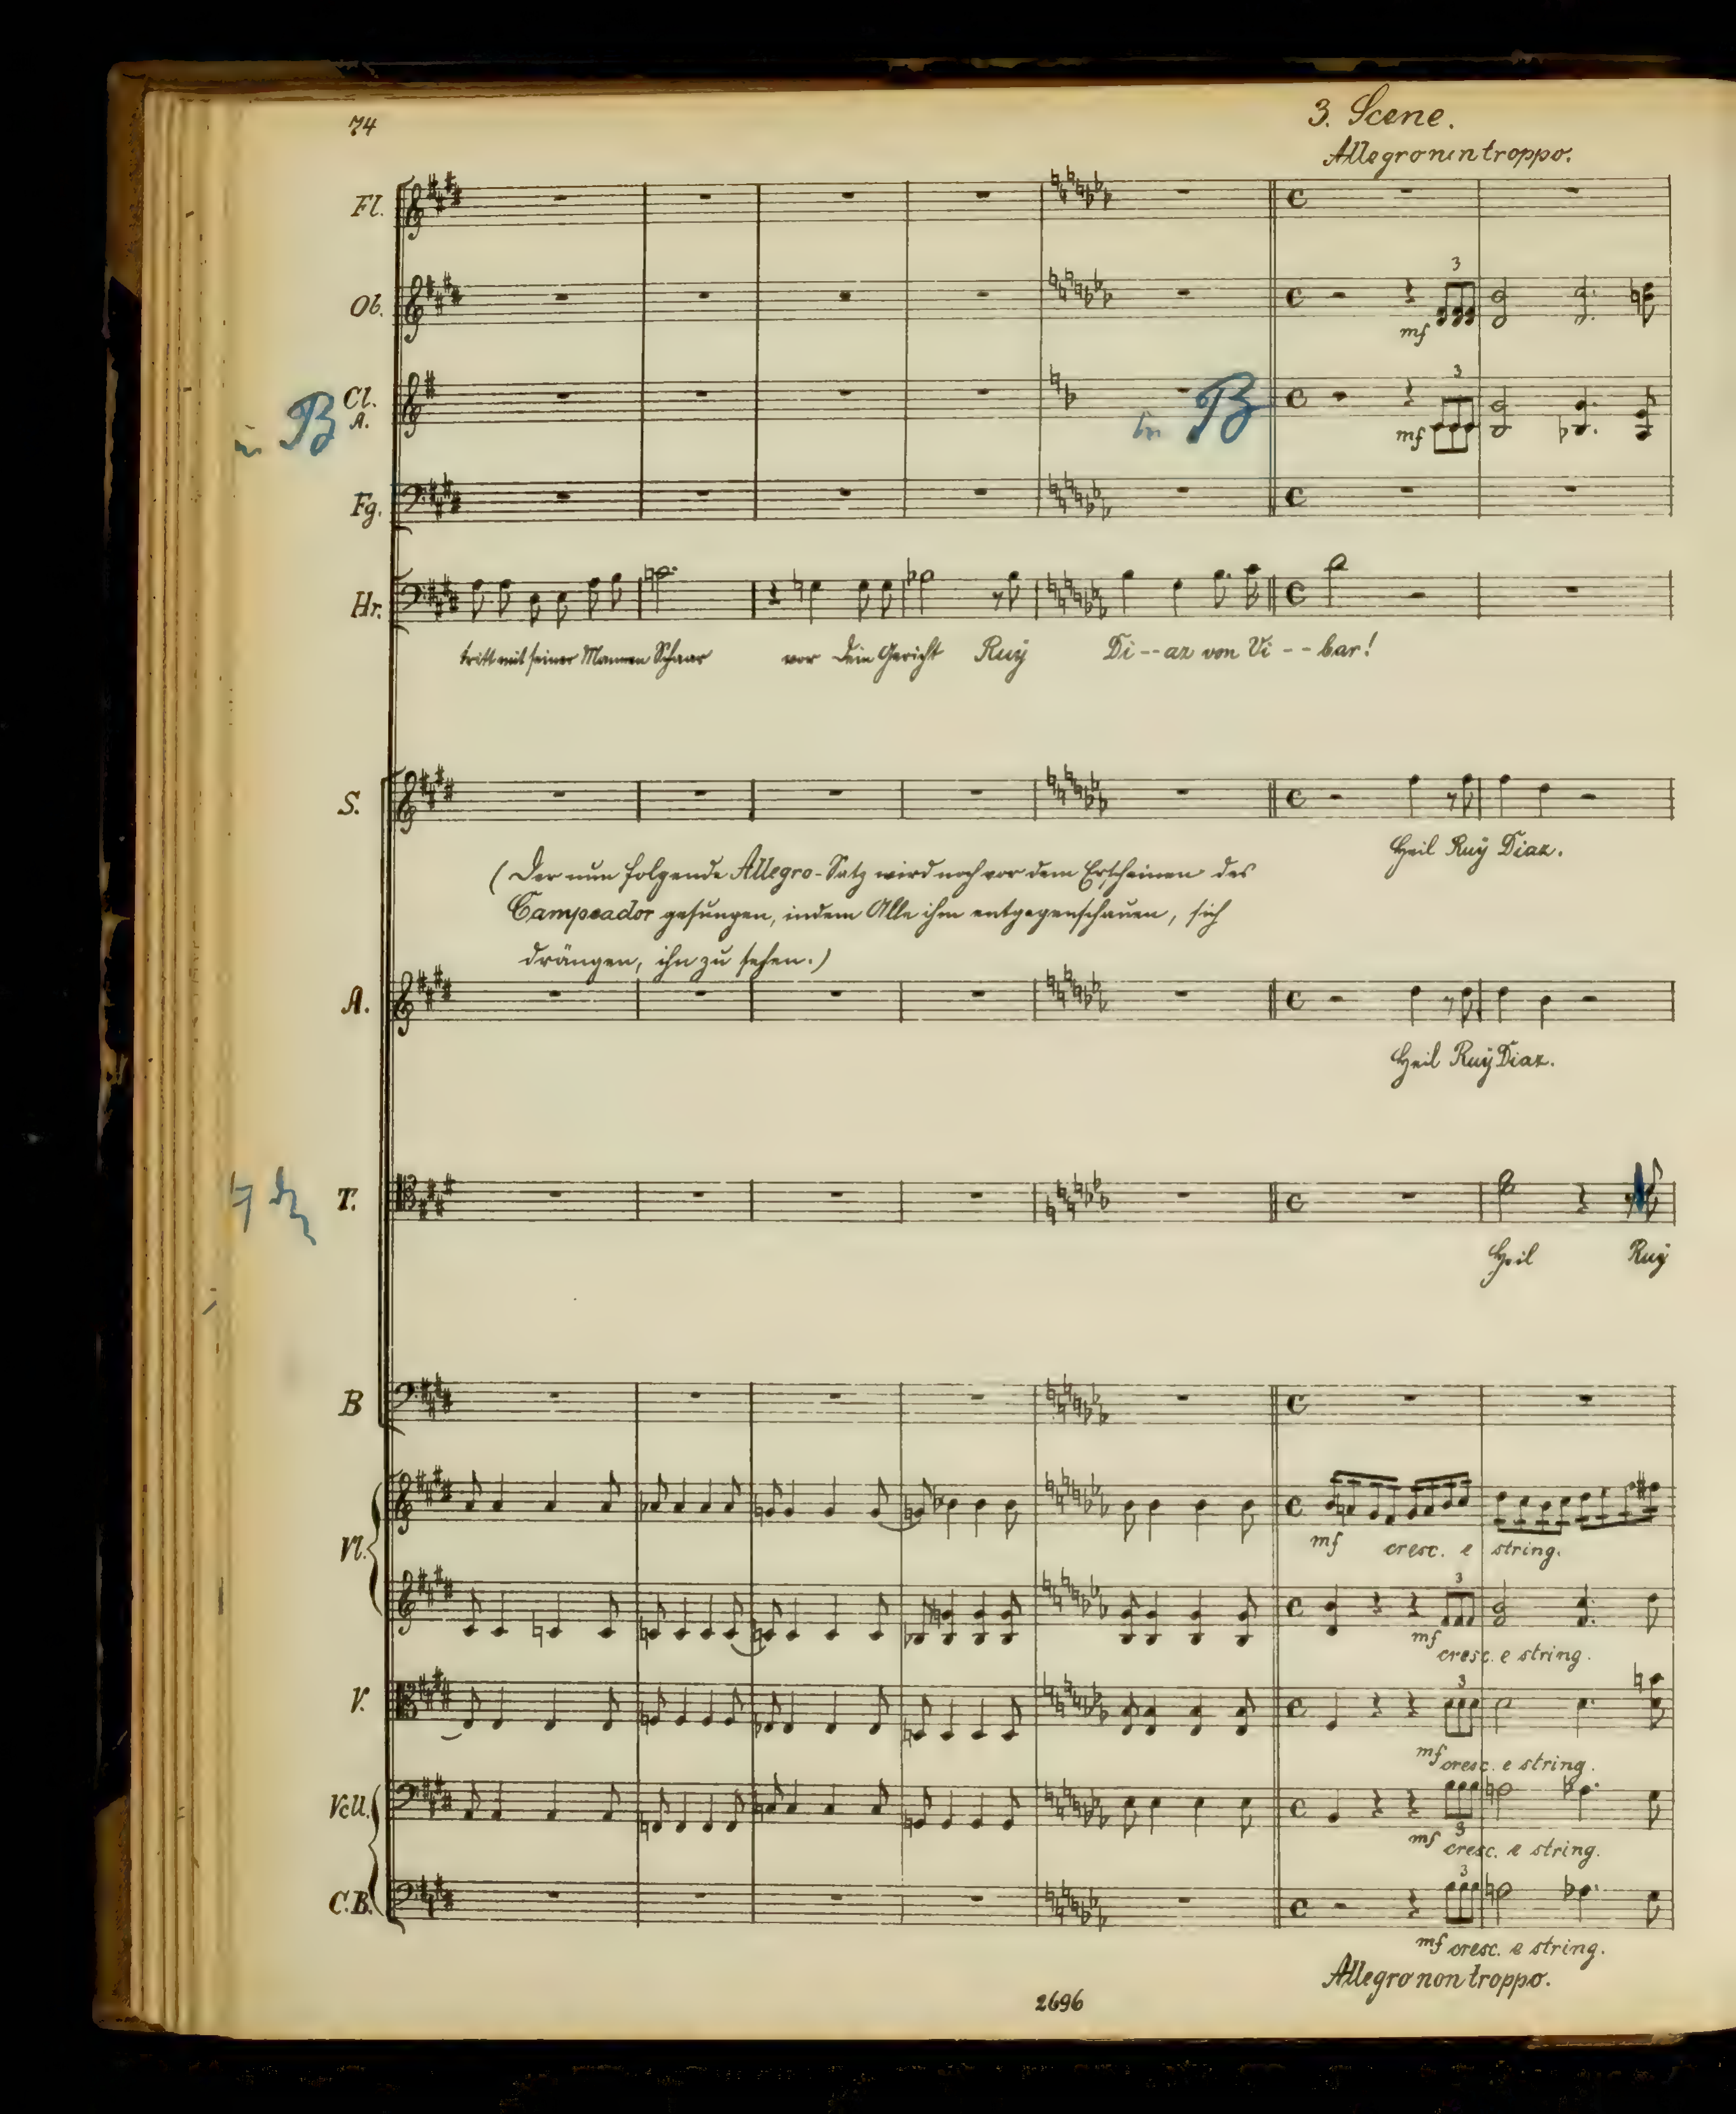 74
3. Scene.
Allegro non troppo.
Fl.
Ob.
3
mf
in B
Cl.
A.
in B
3
mf
Fg.
Hr.
tritt mit seiner Mannen Schaar vor dein Gericht Ruy Di--az von Vi--bar!
S.
Heil Ruy Diaz.
(Der nun folgende Allegro-Satz wird noch vor dem Erscheinen des
Campeador gesungen, indem Alle ihm entgegenschauen, sich
drängen, ihn zu sehen.)
A.
Heil Ruy Diaz.
T.
Heil Ruy
B
Vl.
mf cresc. e string.
3
mf cresc. e string.
V.
3
mf cresc. e string.
Vcll.
3
mf cresc. e string.
C.B.
3
mf cresc. e string.
Allegro non troppo.
2696